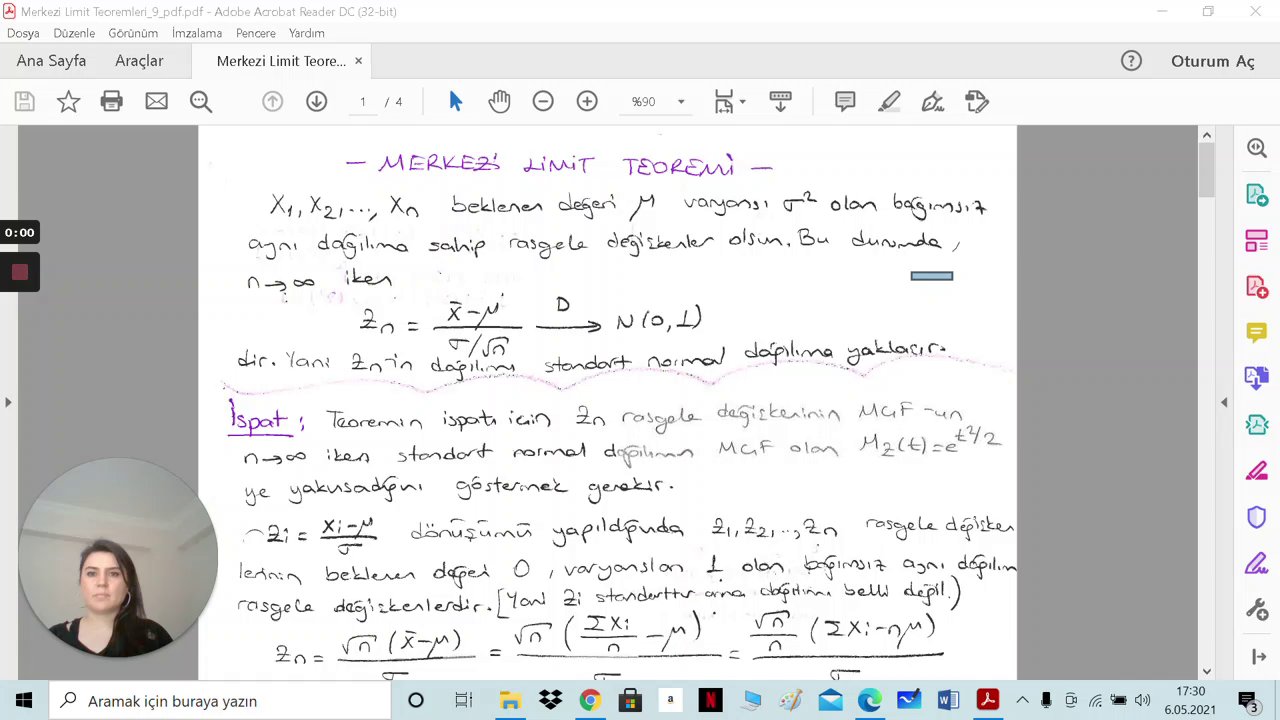 Merkezi Limit Teoremleri_9_pdf.pdf - Adobe Acrobat Reader DC (32-bit)
Dosya Düzenle Görünüm İmzalama Pencere Yardım
Ana Sayfa Araçlar Merkezi Limit Teore... × Oturum Aç
1 / 4 %90
- MERKEZİ LİMİT TEOREMİ -
X₁, X₂, ..., Xn beklenen değeri μ varyansı σ² olan bağımsız
aynı dağılıma sahip rasgele değişkenler olsun. Bu durumda,
n→∞ iken
Zn = (x̄-μ)/(σ/√n) →D N(0,1)
dir. Yani Zn-in dağılımı standart normal dağılıma yaklaşır.
İspat: Teoremin ispatı için Zn rasgele değişkeninin MGF-un
n→∞ iken standart normal dağılımın MGF olan Mz(t)=e^(t²/2)
ye yakınsadığını göstermek gerekir.
Zi = (Xi-μ)/σ dönüşümü yapıldığında Z₁, Z₂, ..., Zn rasgele değişken
lerinin beklenen değeri 0, varyansları 1 olan bağımsız aynı dağılım
rasgele değişkenlerdir. [Yani Zi standarttır ama dağılımı belli değil.)
Zn = √n (x̄-μ)/σ = √n (ΣXi/n - μ)/σ = √n/n (ΣXi-nμ)/σ
0:00
Aramak için buraya yazın
17:30
6.05.2021
3